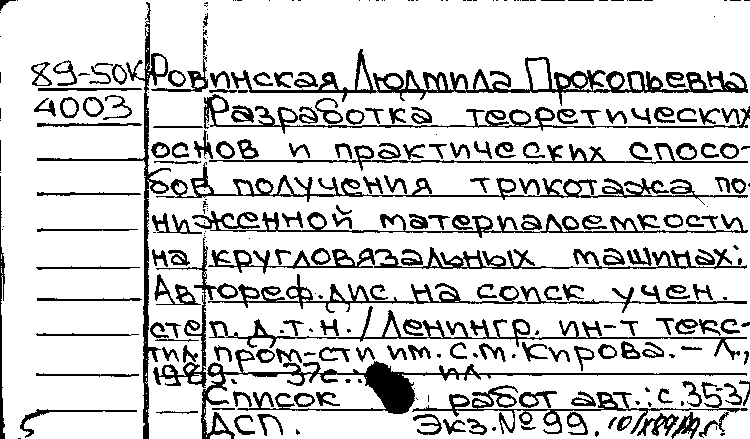 89-50К Ровинская, Людмила Прокопьевна
4003 Разработка теоретических
основ и практических спосо-
бов получения трикотажа по-
ниженной материалоемкости
на кругловязальных машинах:
Автореф. дис. на соиск. учен.
степ. д.т.н. / Ленингр. ин-т текс-
тил. пром-сти им. С.М. Кирова. – Л.,
1989. – 37с.: ил.
Список работ авт.: с. 35-37
ДСП. Экз. № 99.
5